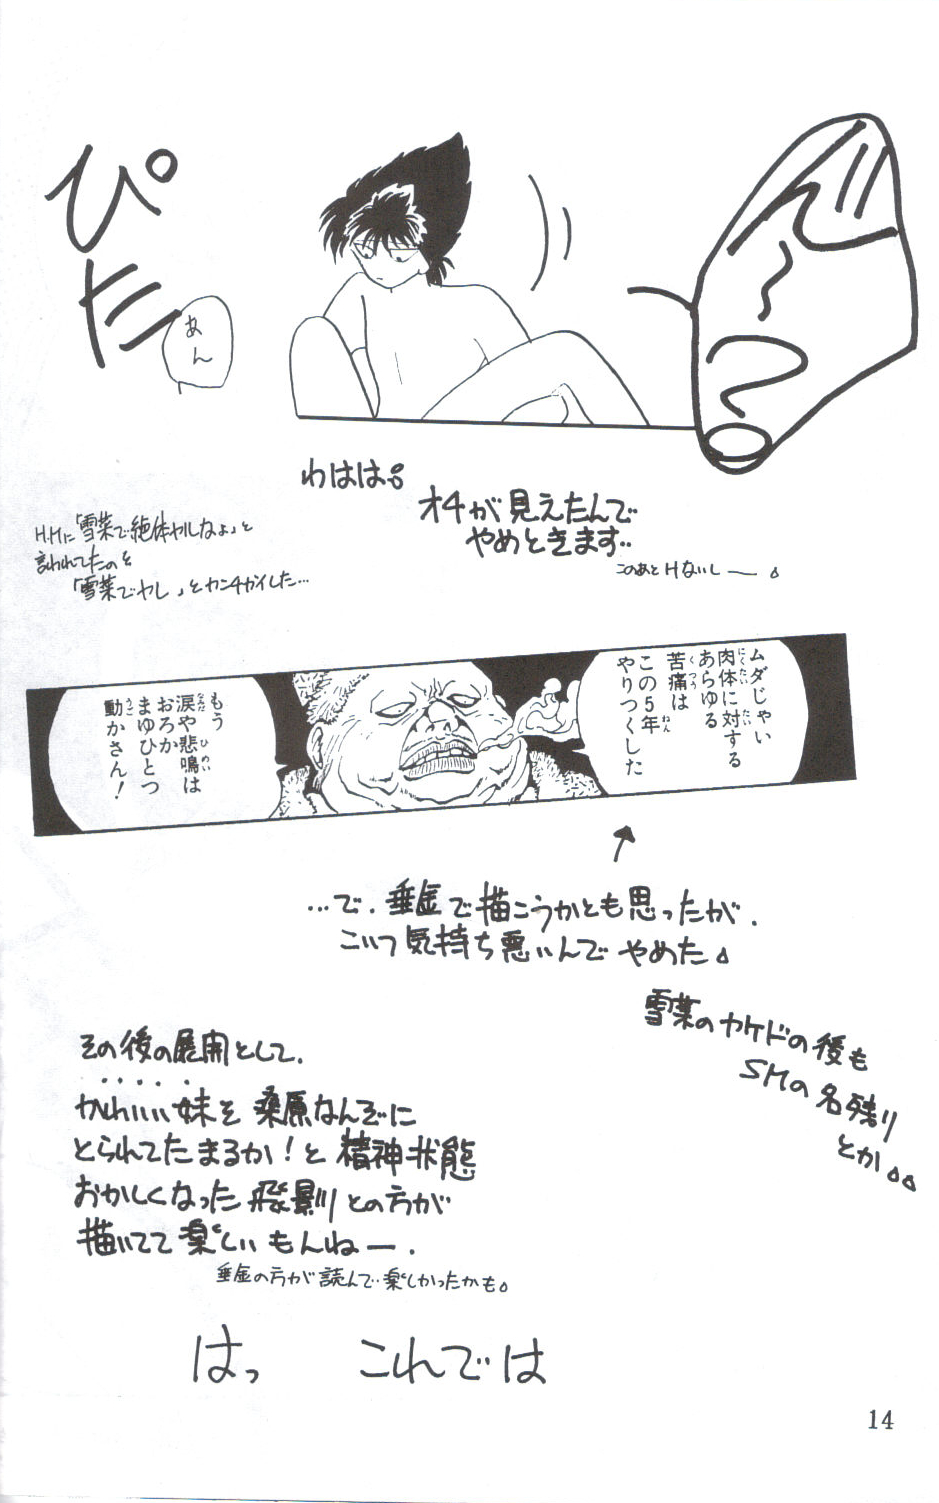 ぴた
あん
わはは。
オチが見えたんで
やめときます..
このあとHないしー。
H.Hに「雪菜で絶体ヤルなよ」と
言われてたのを
「雪菜でヤレ」とカンチガイした…
ムダじゃい
肉体に対する
あらゆる
苦痛は
この5年
やりつくした
もう
涙や悲鳴は
おろか
まゆひとつ
動かさん!
…で、垂金で描こうかとも思ったが、
こいつ気持ち悪いんでやめた。
雪菜のヤケドの後も
SMの名残り
とか。。
その後の展開として、
かわいい妹を桑原なんぞに
とられてたまるか!と精神状態
おかしくなった飛影との方が
描いてて楽しいもんねー.
垂金の方が読んで楽しかったかも。
はっ これでは
14